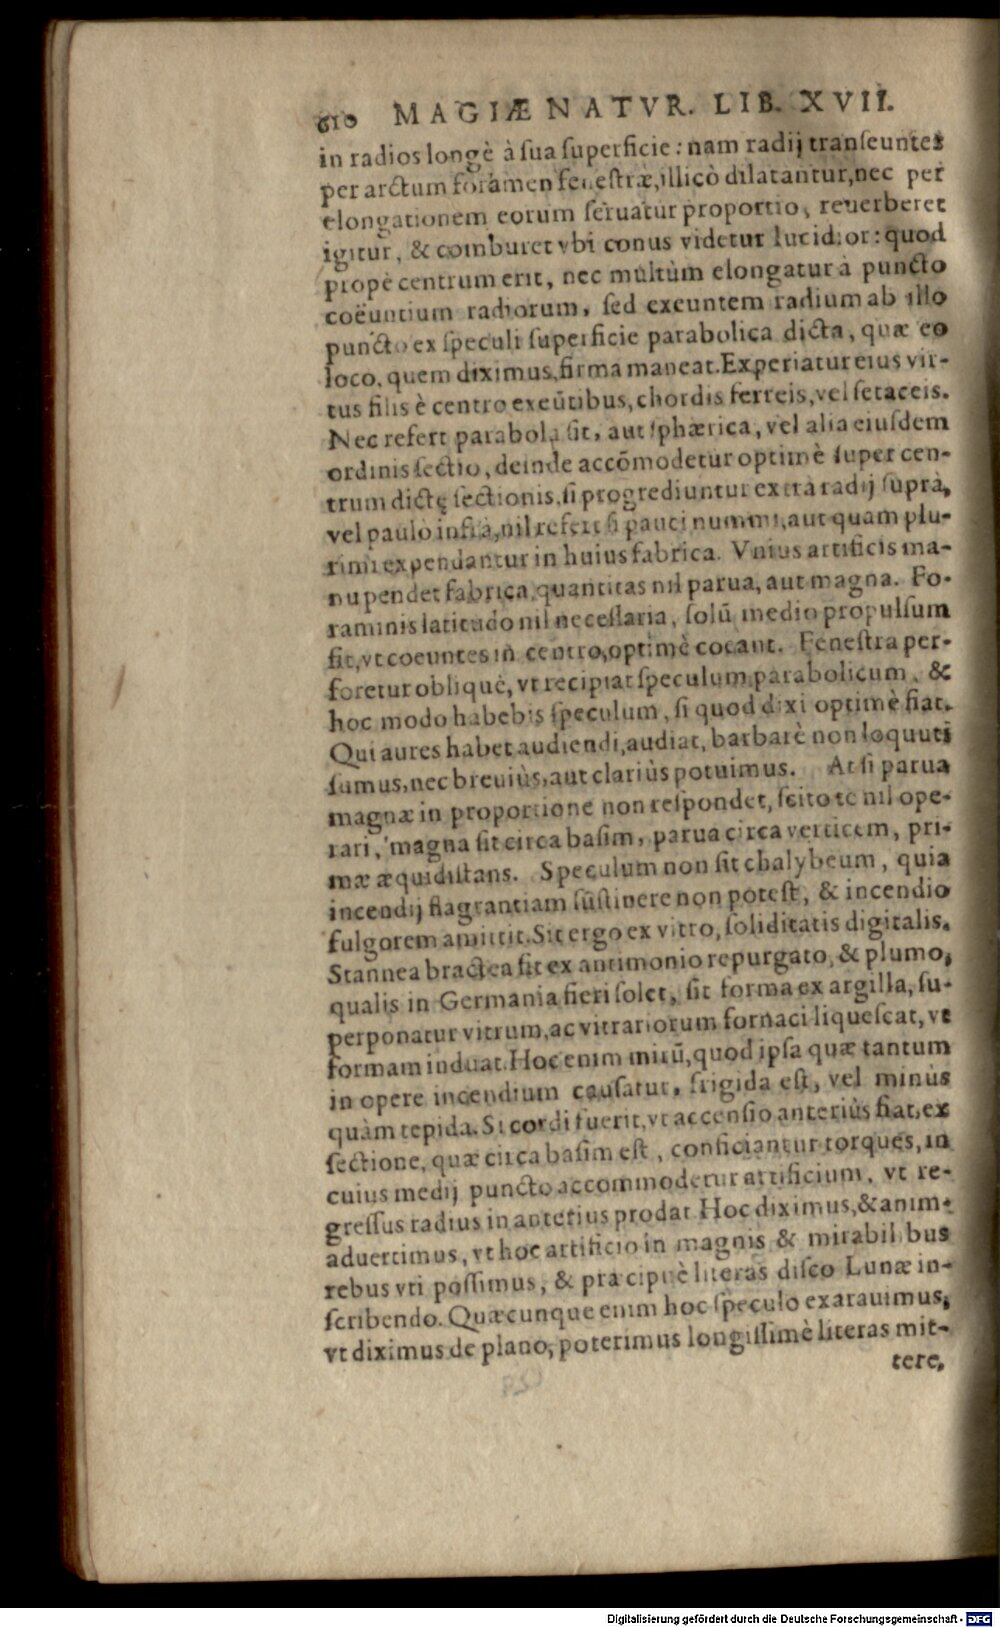 610 MAGIÆ NATVR. LIB. XVII.
in radios longè à sua superficie: nam radij transeuntes
per arctum foramen fenestræ, illicò dilatantur, nec per
elongationem eorum seruatur proportio, reuerberet
igitur, & comburet vbi conus videtur lucidior: quod
propè centrum erit, nec multùm elongatur à puncto
coëuntium radiorum, sed exeuntem radium ab illo
puncto ex speculi superficie parabolica dicta, quæ eo
loco, quem diximus, firma maneat. Experiatur eius vir-
tus filis è centro exeũtibus, chordis ferreis, vel setaceis.
Nec refert parabola sit, aut sphærica, vel alia eiusdem
ordinis sectio, deinde accõmodetur optimè super cen-
trum dictę sectionis, si progrediuntur extra radij suprà,
vel paulò infrà, nil refert si pauci nummi, aut quam plu-
rimi expendantur in huius fabrica. Vnius artificis ma-
nu pendet fabrica, quantitas nil parua, aut magna. Fo-
raminis latitudo nil necessaria, solũ medio propulsum
sit, vt coeuntes in centro, optimè coeant. Fenestra per-
foretur obliquè, vt recipiat speculum parabolicum, &
hoc modo habebis speculum, si quod dixi optimè fiat.
Qui aures habet audiendi, audiat, barbarè non loquuti
sumus, nec breuiùs, aut clariùs potuimus. At si parua
magnæ in proportione non respondet, scitote nil ope-
rari, magna sit circa basim, parua circa verticem, pri-
mæ æquidistans. Speculum non sit chalybeum, quia
incendij flagrantiam sustinere non potest, & incendio
fulgorem amittit. Sit ergo ex vitro, soliditatis digitalis.
Stannea bractea sit ex antimonio repurgato, & plumo,
qualis in Germania fieri solet, sit forma ex argilla, su-
perponatur vitrum, ac vitrariorum fornaci liquescat, vt
formam induat. Hoc enim mirũ, quod ipsa quæ tantum
in opere incendium causatur, frigida est, vel minùs
quàm tepida. Si cordi fuerit, vt accensio anteriùs fiat, ex
sectione, quæ circa basim est, conficiantur torques, in
cuius medij puncto accommodetur artificium, vt re-
gressus radius in anterius prodat. Hoc diximus, & anim-
aduertimus, vt hoc artificio in magnis & mirabilibus
rebus vti possimus, & præcipuè literas disco Lunæ in-
scribendo. Quæcunque enim hoc speculo exarauimus,
vt diximus de plano, poterimus longissimè literas mit-
tere,
Digitalisierung gefördert durch die Deutsche Forschungsgemeinschaft - DFG